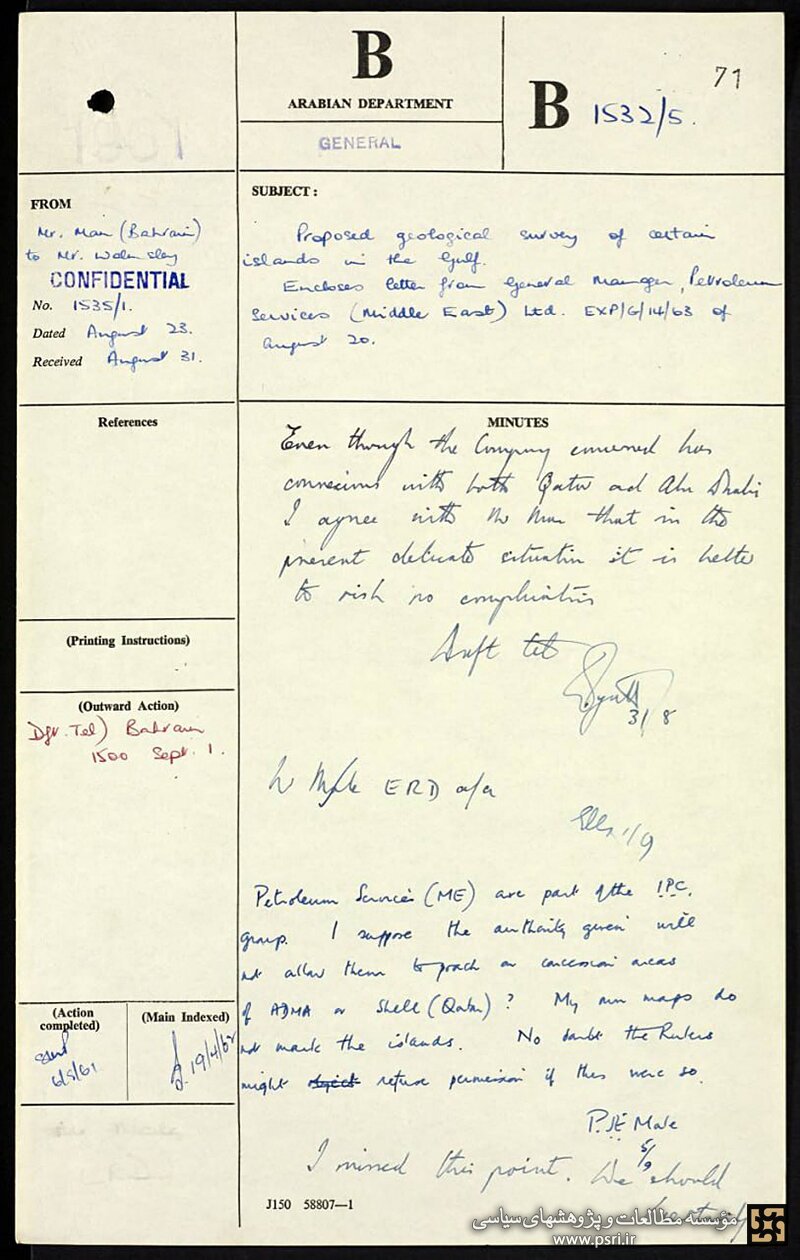 71
B
ARABIAN DEPARTMENT
GENERAL
B 1532/5.
FROM
Mr. Man (Bahrain)
to Mr. Walmsley
CONFIDENTIAL
No. 1535/1.
Dated August 23.
Received August 31.
SUBJECT:
Proposed geological survey of certain
islands in the Gulf.
Encloses letter from General Manager, Petroleum
Services (Middle East) Ltd. EXP/G/14/63 of
August 20.
References
(Printing Instructions)
(Outward Action)
Dft. Tel) Bahrain
1500 Sept. 1.
(Action
completed)
6/9/61
(Main Indexed)
19/4/62
MINUTES
Even though the Company concerned has
connexions with both Qatar and Abu Dhabi
I agree with Mr Man that in the
present delicate situation it is better
to risk no complications
Draft tel
31/8
Mr Male ERD o/r
1/9
Petroleum Services (ME) are part of the IPC.
group. I suppose the authority given will
not allow them to poach on concession areas
of ADMA or Shell (Qatar)? My own maps do
not mark the islands. No doubt the Rulers
might object refuse permission if this were so.
P.J.E. Male
5/9
I missed this point. We should
J150 58807—1
مؤسسه مطالعات و پژوهشهای سیاسی
www.psri.ir